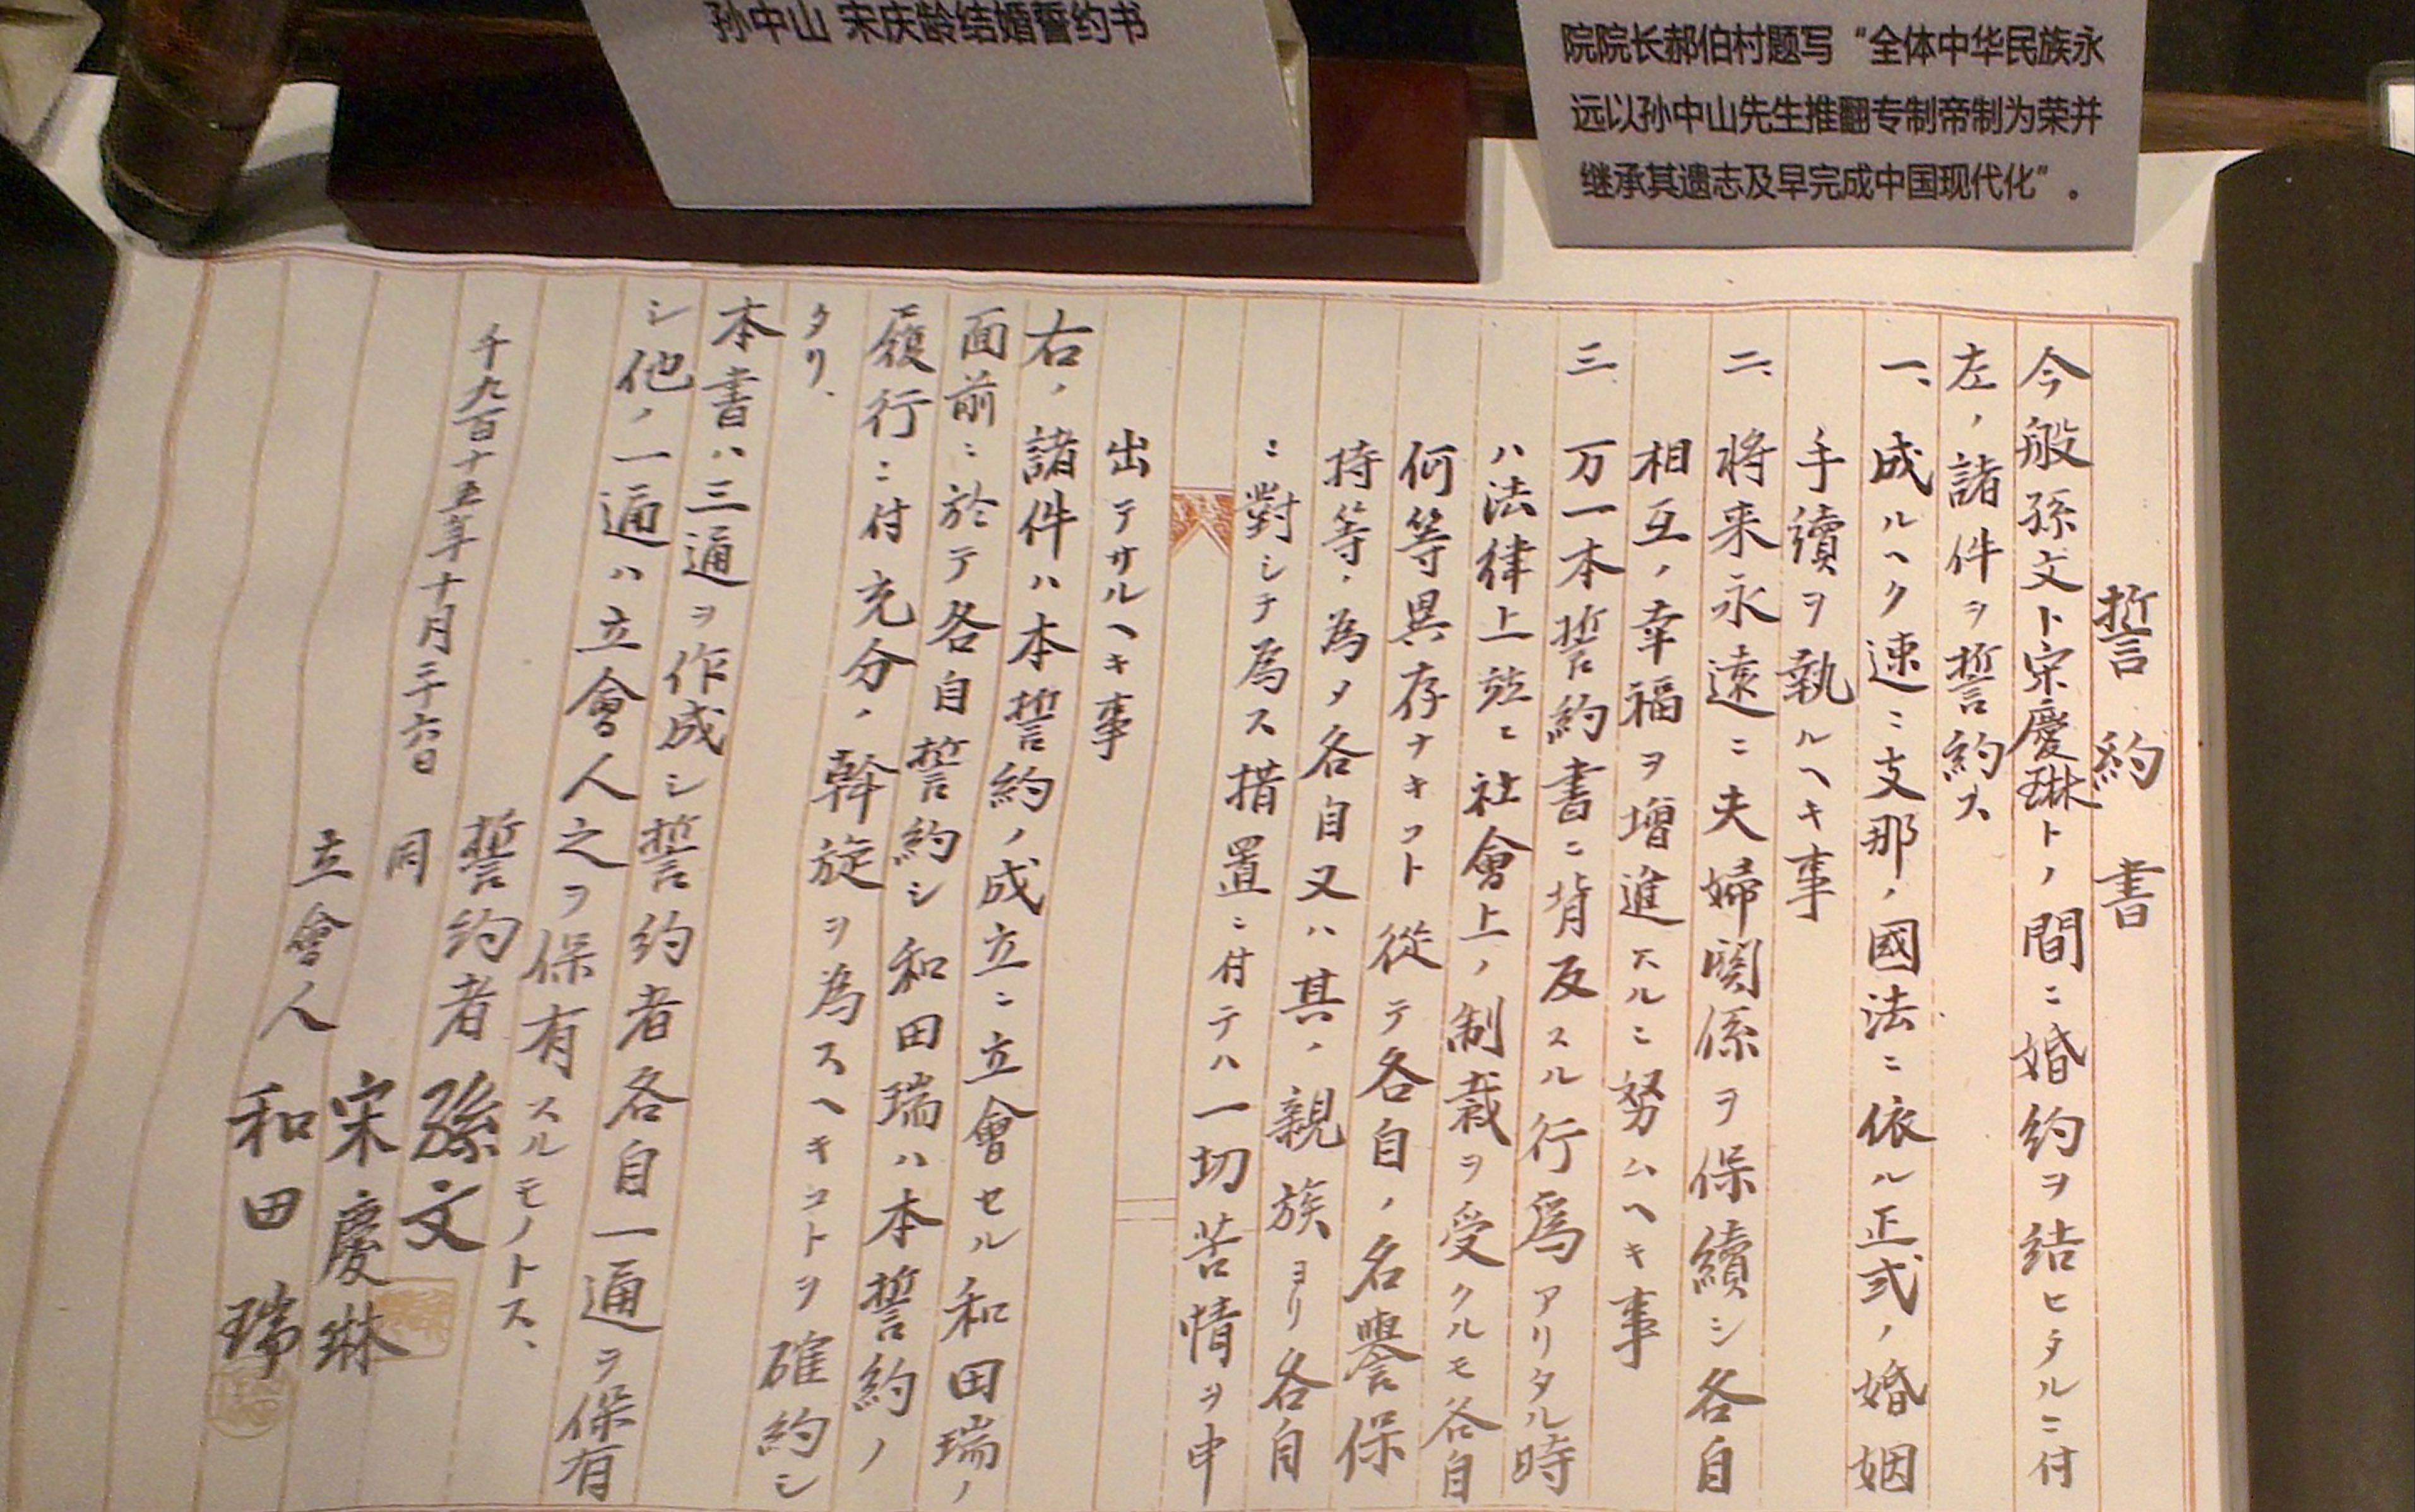 孙中山 宋庆龄结婚誓约书
院院长郝伯村题写“全体中华民族永
远以孙中山先生推翻专制帝制为荣并
继承其遗志及早完成中国现代化”。
誓約書
今般孫文ト宋慶琳トノ間ニ婚約ヲ結ヒタルニ付
左ノ諸件ヲ誓約ス
一、成ルヘク速ニ支那ノ國法ニ依ル正式ノ婚姻
手續ヲ執ルヘキ事
二、将来永遠ニ夫婦関係ヲ保續シ各自
相互ノ幸福ヲ増進スルニ努ムヘキ事
三 万一本誓約書ニ背反スル行為アリタル時
ハ法律上並ニ社會上ノ制裁ヲ受クルモ各自
何等異存ナキコト從テ各自ノ名譽保
持等ノ為メ各自又ハ其ノ親族ヨリ各自
ニ對シテ為ス措置ニ付テハ一切苦情ヲ申
出テサルヘキ事
右ノ諸件ハ本誓約ノ成立ニ立會セル和田瑞ノ
面前ニ於テ各自誓約シ和田瑞ハ本誓約ノ
履行ニ付充分ノ斡旋ヲ為スヘキコトヲ確約シ
タリ、
本書ハ三通ヲ作成シ誓約者各自一通ヲ保有
シ他ノ一通ハ立會人之ヲ保有スルモノトス、
千九百十五年十月二十六日
誓約者 孫文
同 宋慶琳
立會人 和田瑞